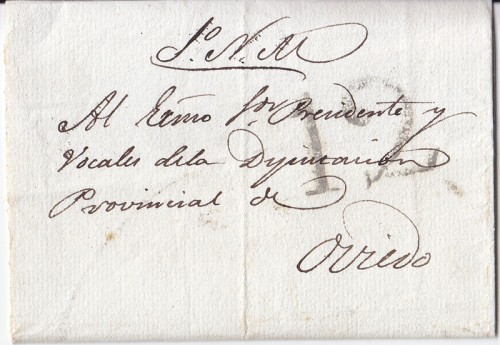 So. N. M
Al Exmo Sor Presidente y
Vocales dela Diputacion
Provincial de
Oviedo